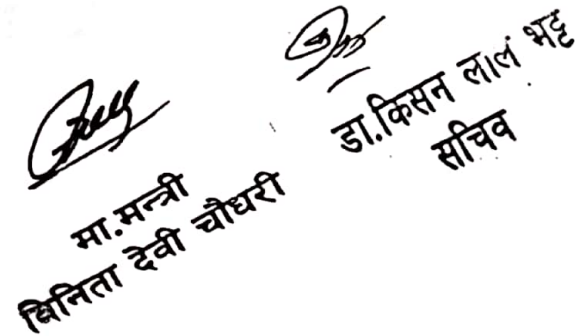 मा.मन्त्री
बिनिता देवी चौधरी
डा.किसन लाल भट्ट
सचिव